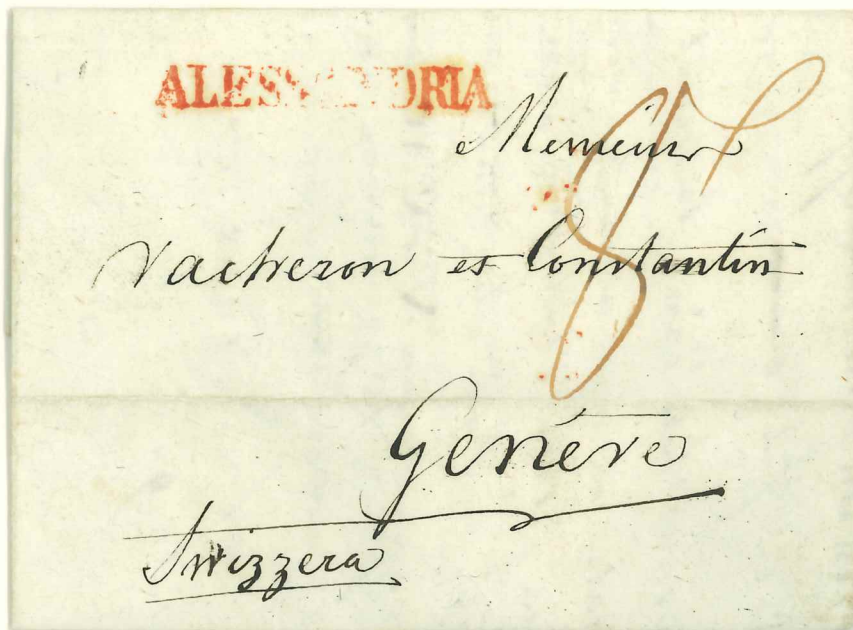 ALESSANDRIA
Messieurs
Vacheron et Constantin
8
Genève
Svizzera